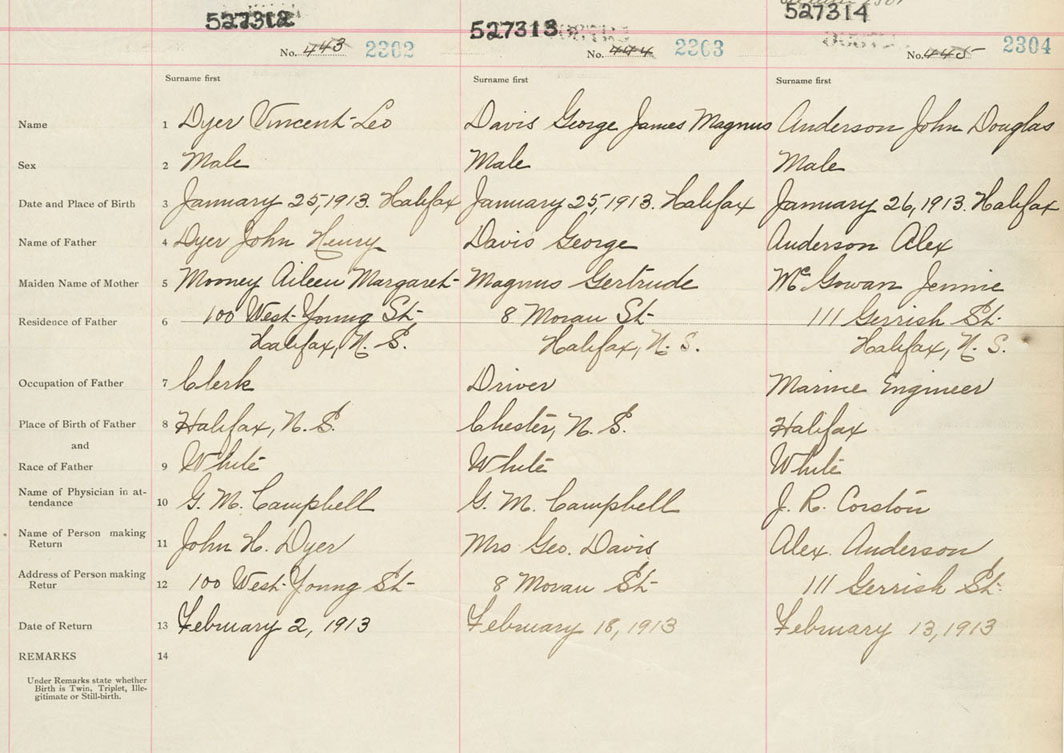 527312 527313 527314
No. 443 2302 No. 444 2303 No. 445 2304
Surname first Surname first Surname first
Name 1 Dyer Vincent Leo Davis George James Magnus Anderson John Douglas
Sex 2 Male Male Male
Date and Place of Birth 3 January 25, 1913. Halifax January 25, 1913. Halifax January 26, 1913. Halifax
Name of Father 4 Dyer John Henry Davis George Anderson Alex
Maiden Name of Mother 5 Mooney Aileen Margaret Magnus Gertrude McGowan Jennie
Residence of Father 6 100 West Young St 8 Moran St 111 Gerrish St.
Halifax, N. S. Halifax, N. S. Halifax, N. S.
Occupation of Father 7 Clerk Driver Marine Engineer
Place of Birth of Father 8 Halifax, N. S. Chester, N. S. Halifax
and
Race of Father 9 White White White
Name of Physician in at-
tendance 10 G. M. Campbell G. M. Campbell J. R. Corston
Name of Person making
Return 11 John H. Dyer Mrs Geo. Davis Alex. Anderson
Address of Person making
Retur 12 100 West Young St 8 Moran St 111 Gerrish St.
Date of Return 13 February 2, 1913 February 18, 1913 February 13, 1913
REMARKS 14
Under Remarks state whether
Birth is Twin, Triplet, Ille-
gitimate or Still-birth.